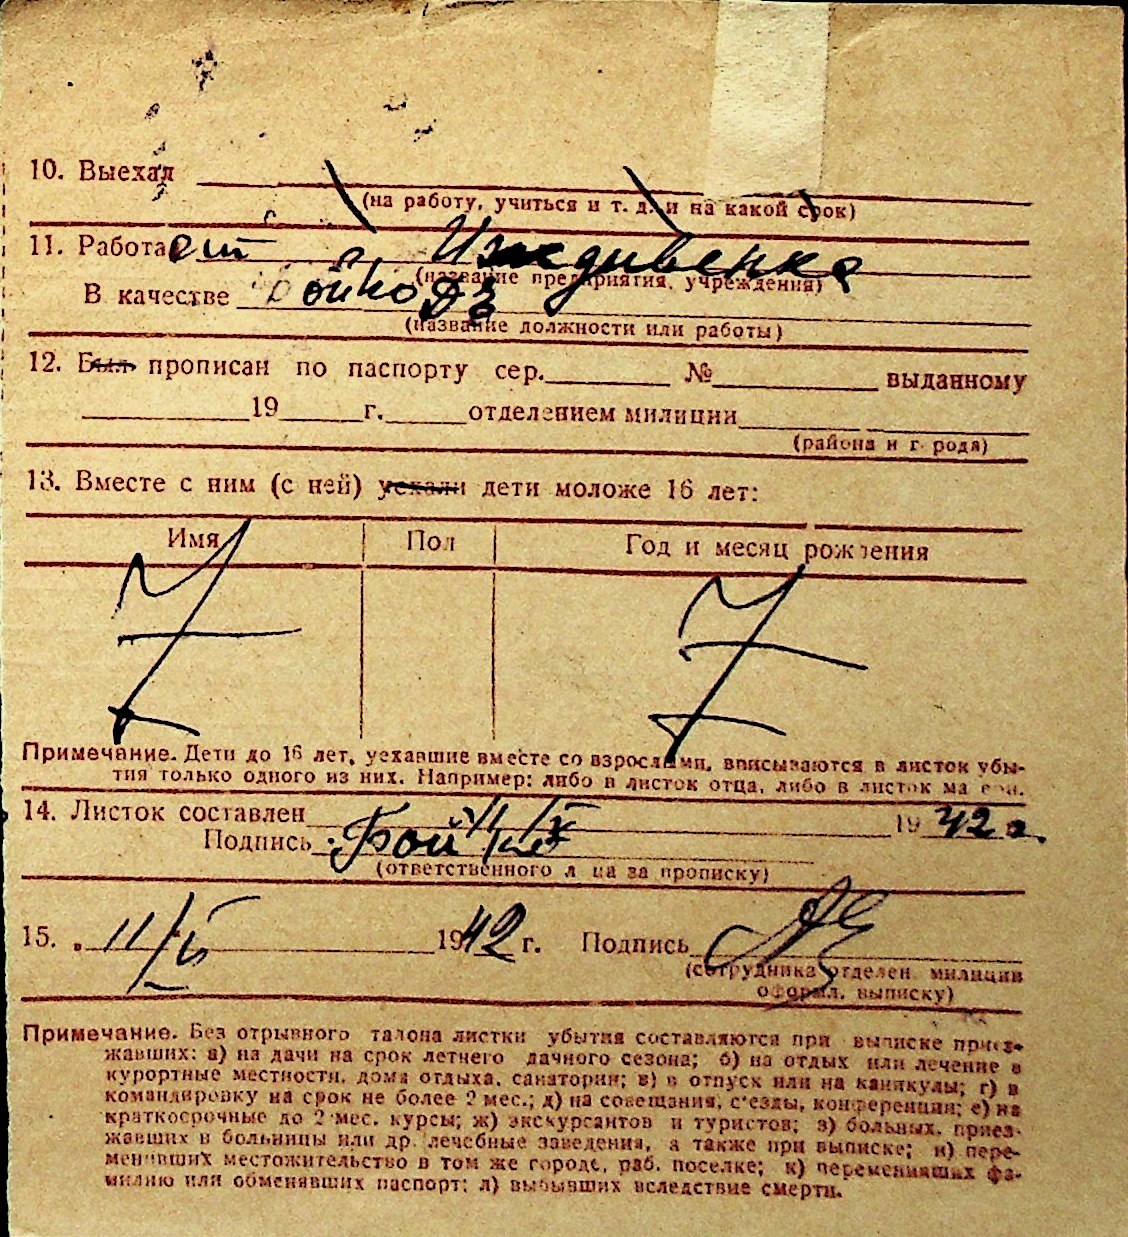 10. Выехал
(на работу, учиться и т. д. и на какой срок)
11. Работает Иждивенка
(название предприятия, учреждения)
В качестве Бойко
(название должности или работы)
12. Был прописан по паспорту сер. № выданному
19 г. отделением милиции
(района и города)
13. Вместе с ним (с ней) уехали дети моложе 16 лет:
Имя Пол Год и месяц рождения
Примечание. Дети до 16 лет, уехавшие вместе со взрослыми, вписываются в листок убы-
тия только одного из них. Например: либо в листок отца, либо в листок матери.
14. Листок составлен 1942 г.
Подпись Бой
(ответственного лица за прописку)
15. 11/V 1942 г. Подпись
(сотрудника отделен. милиции
оформл. выписку)
Примечание. Без отрывного талона листки убытия составляются при выписке приез-
жавших: а) на дачи на срок летнего дачного сезона; б) на отдых или лечение в
курортные местности, дома отдыха, санатории; в) в отпуск или на каникулы; г) в
командировку на срок не более 2 мес.; д) на совещания, съезды, конференции; е) на
краткосрочные до 2 мес. курсы; ж) экскурсантов и туристов; з) больных, приез-
жавших в больницы или др. лечебные заведения, а также при выписке; и) пере-
менивших местожительство в том же городе, раб. поселке; к) переменивших фа-
милию или обменявших паспорт; л) выбывших вследствие смерти.